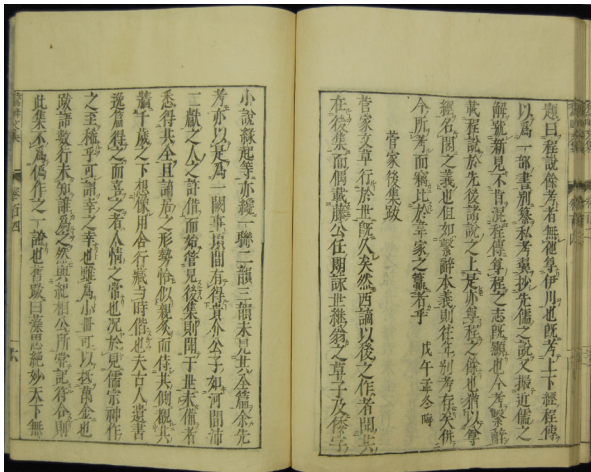 題曰程說餘考者無他尊伊川也既考上下經程傳
以為一部書別纂私考輿抄先儒之說又掇近儒之
解執新見不肯混程傳尊程之志既顯也今考繫辭
載程說於先後諸說之上是亦尊程之餘也猶以尊
經名閣之義也但如繫辭本義則往年別考存矣併
今所考而稱比於韋家之籯者乎 戊午孟冬晦
菅家後集跋
菅家文草行於世既久矣然西謫以後之作者聞共
在後集而偶載藤公任朗詠世繼翁之草子及倭字
小說緣起等亦纔一聯二韻三韻未見其全篇余先
考亦以是為一闕事頃間有得貴介公子如河間沛
二獻之人之許借而始管見後集則聞于世未備者
悉得其全且謫居之形勢恰似親炙而侍其側視其
牘千歲之下想像用舍行藏與時偕也夫古人遺書
逸篇得之而喜之者人情之常也況於見儒宗神作
之至稀乎可謂幸之幸也雖為小冊可以抵萬金也
跋語數行未知誰為之然與紀相公所嘗記符合則
此集不為偽作之一證也舊跋曰藻思絕妙天下無
卷百四